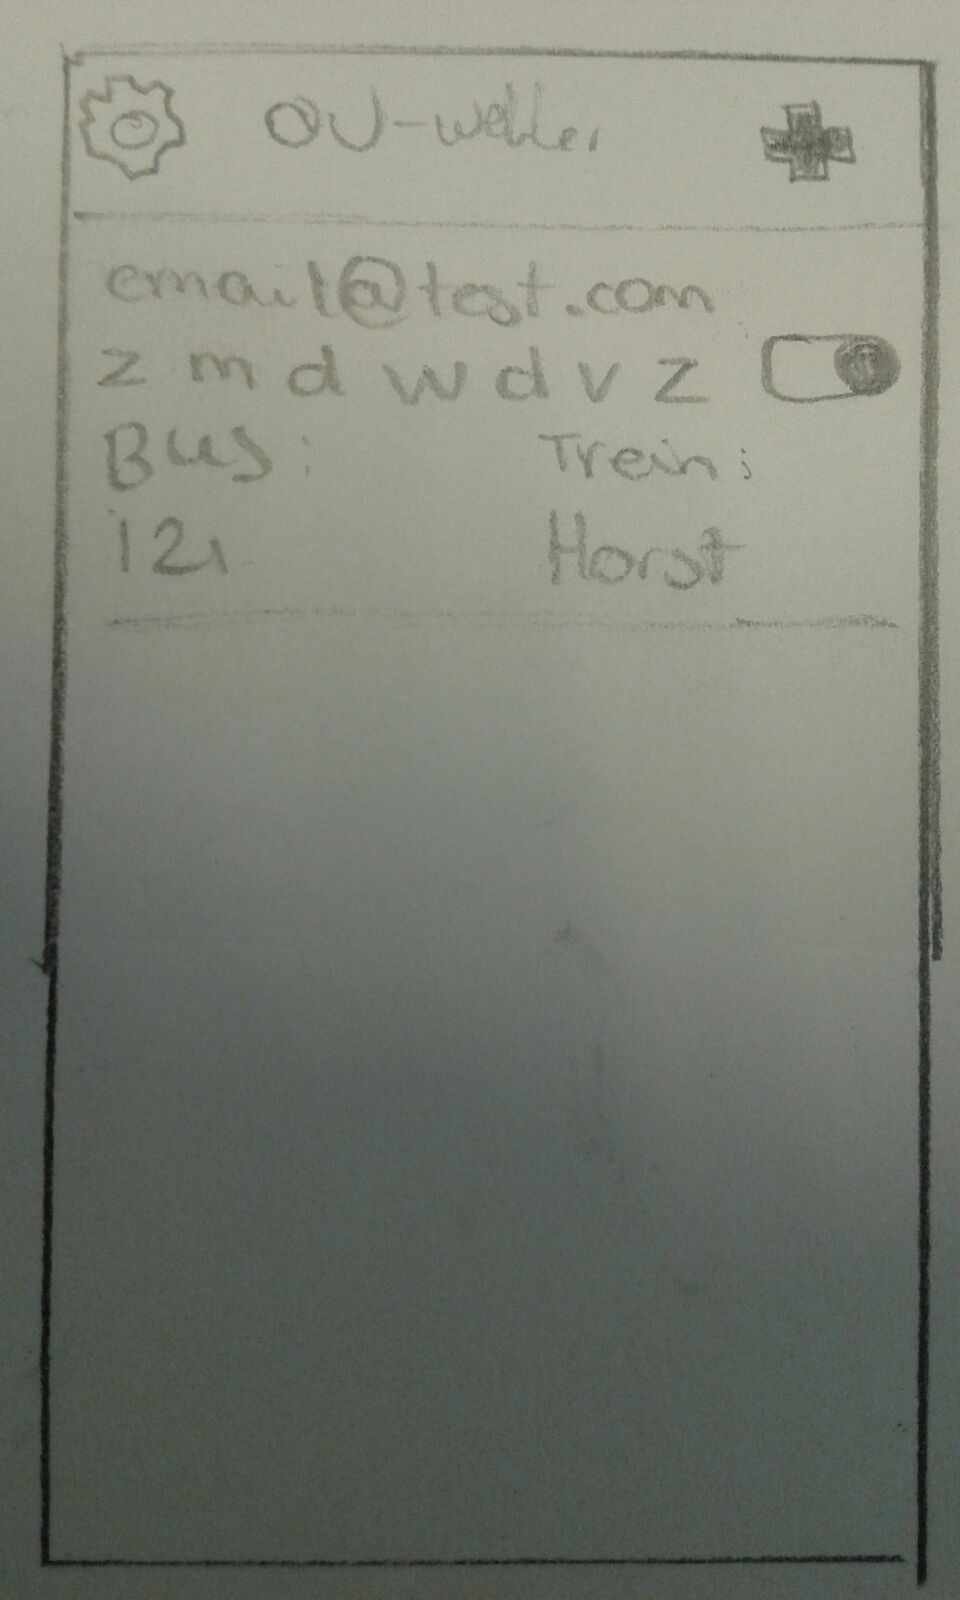 OV-wekker
email@test.com
z m d w d v z
Bus: Trein:
121 Horst